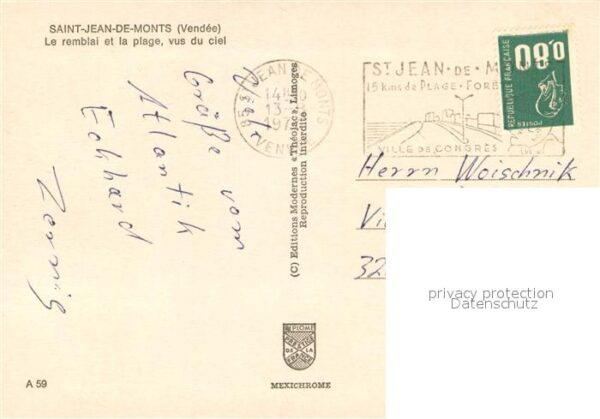 SAINT-JEAN-DE-MONTS (Vendée)
Le remblai et la plage, vus du ciel
Grüße vom
Atlantik
Eckhard
(C) Editions Modernes «Théojac», Limoges
Reproduction interdite
DIPLOME
PRESTIGE
DE LA
FRANCE
MEXICHROME
A 59
ST JEAN-DE-MONTS
VENDÉE
ST JEAN · DE · M
15 kms de PLAGE · FORÊT
VILLE DE CONGRÈS
REPUBLIQUE FRANÇAISE
0.80
POSTES
Herrn Woischnik
32
privacy protection
Datenschutz